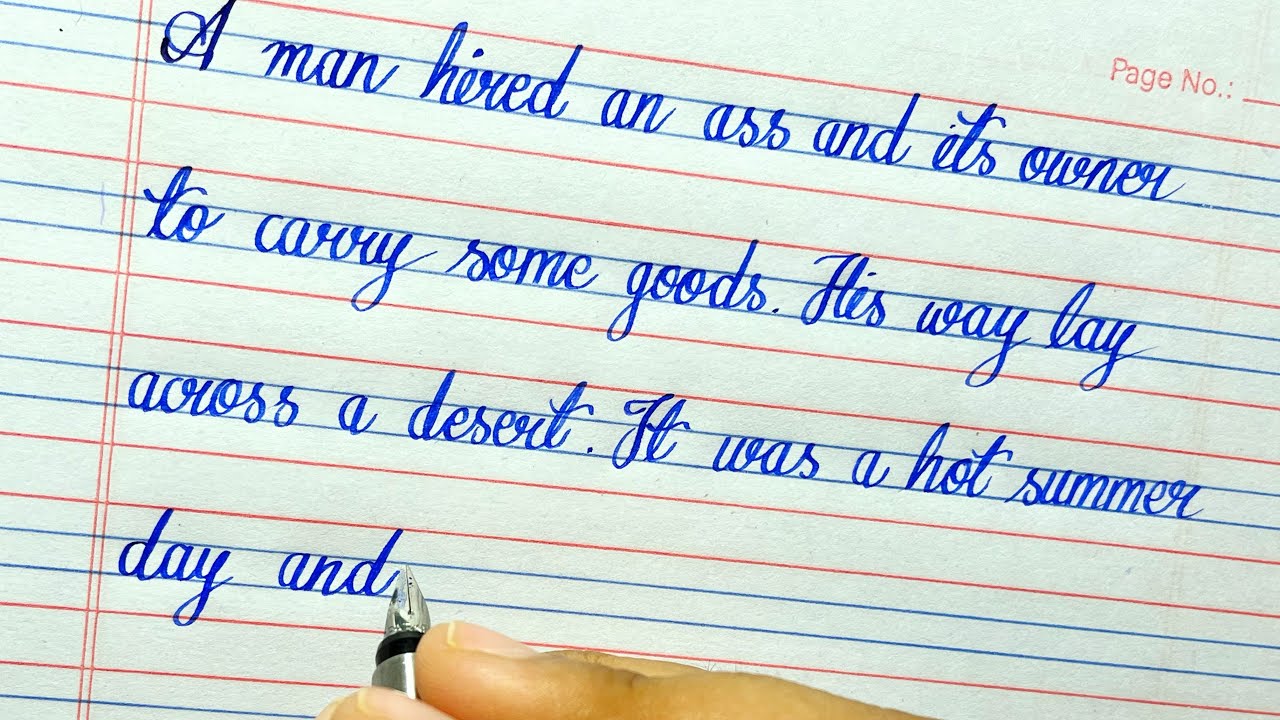 Page No.:
A man hired an ass and its owner
to carry some goods. His way lay
across a desert. It was a hot summer
day and